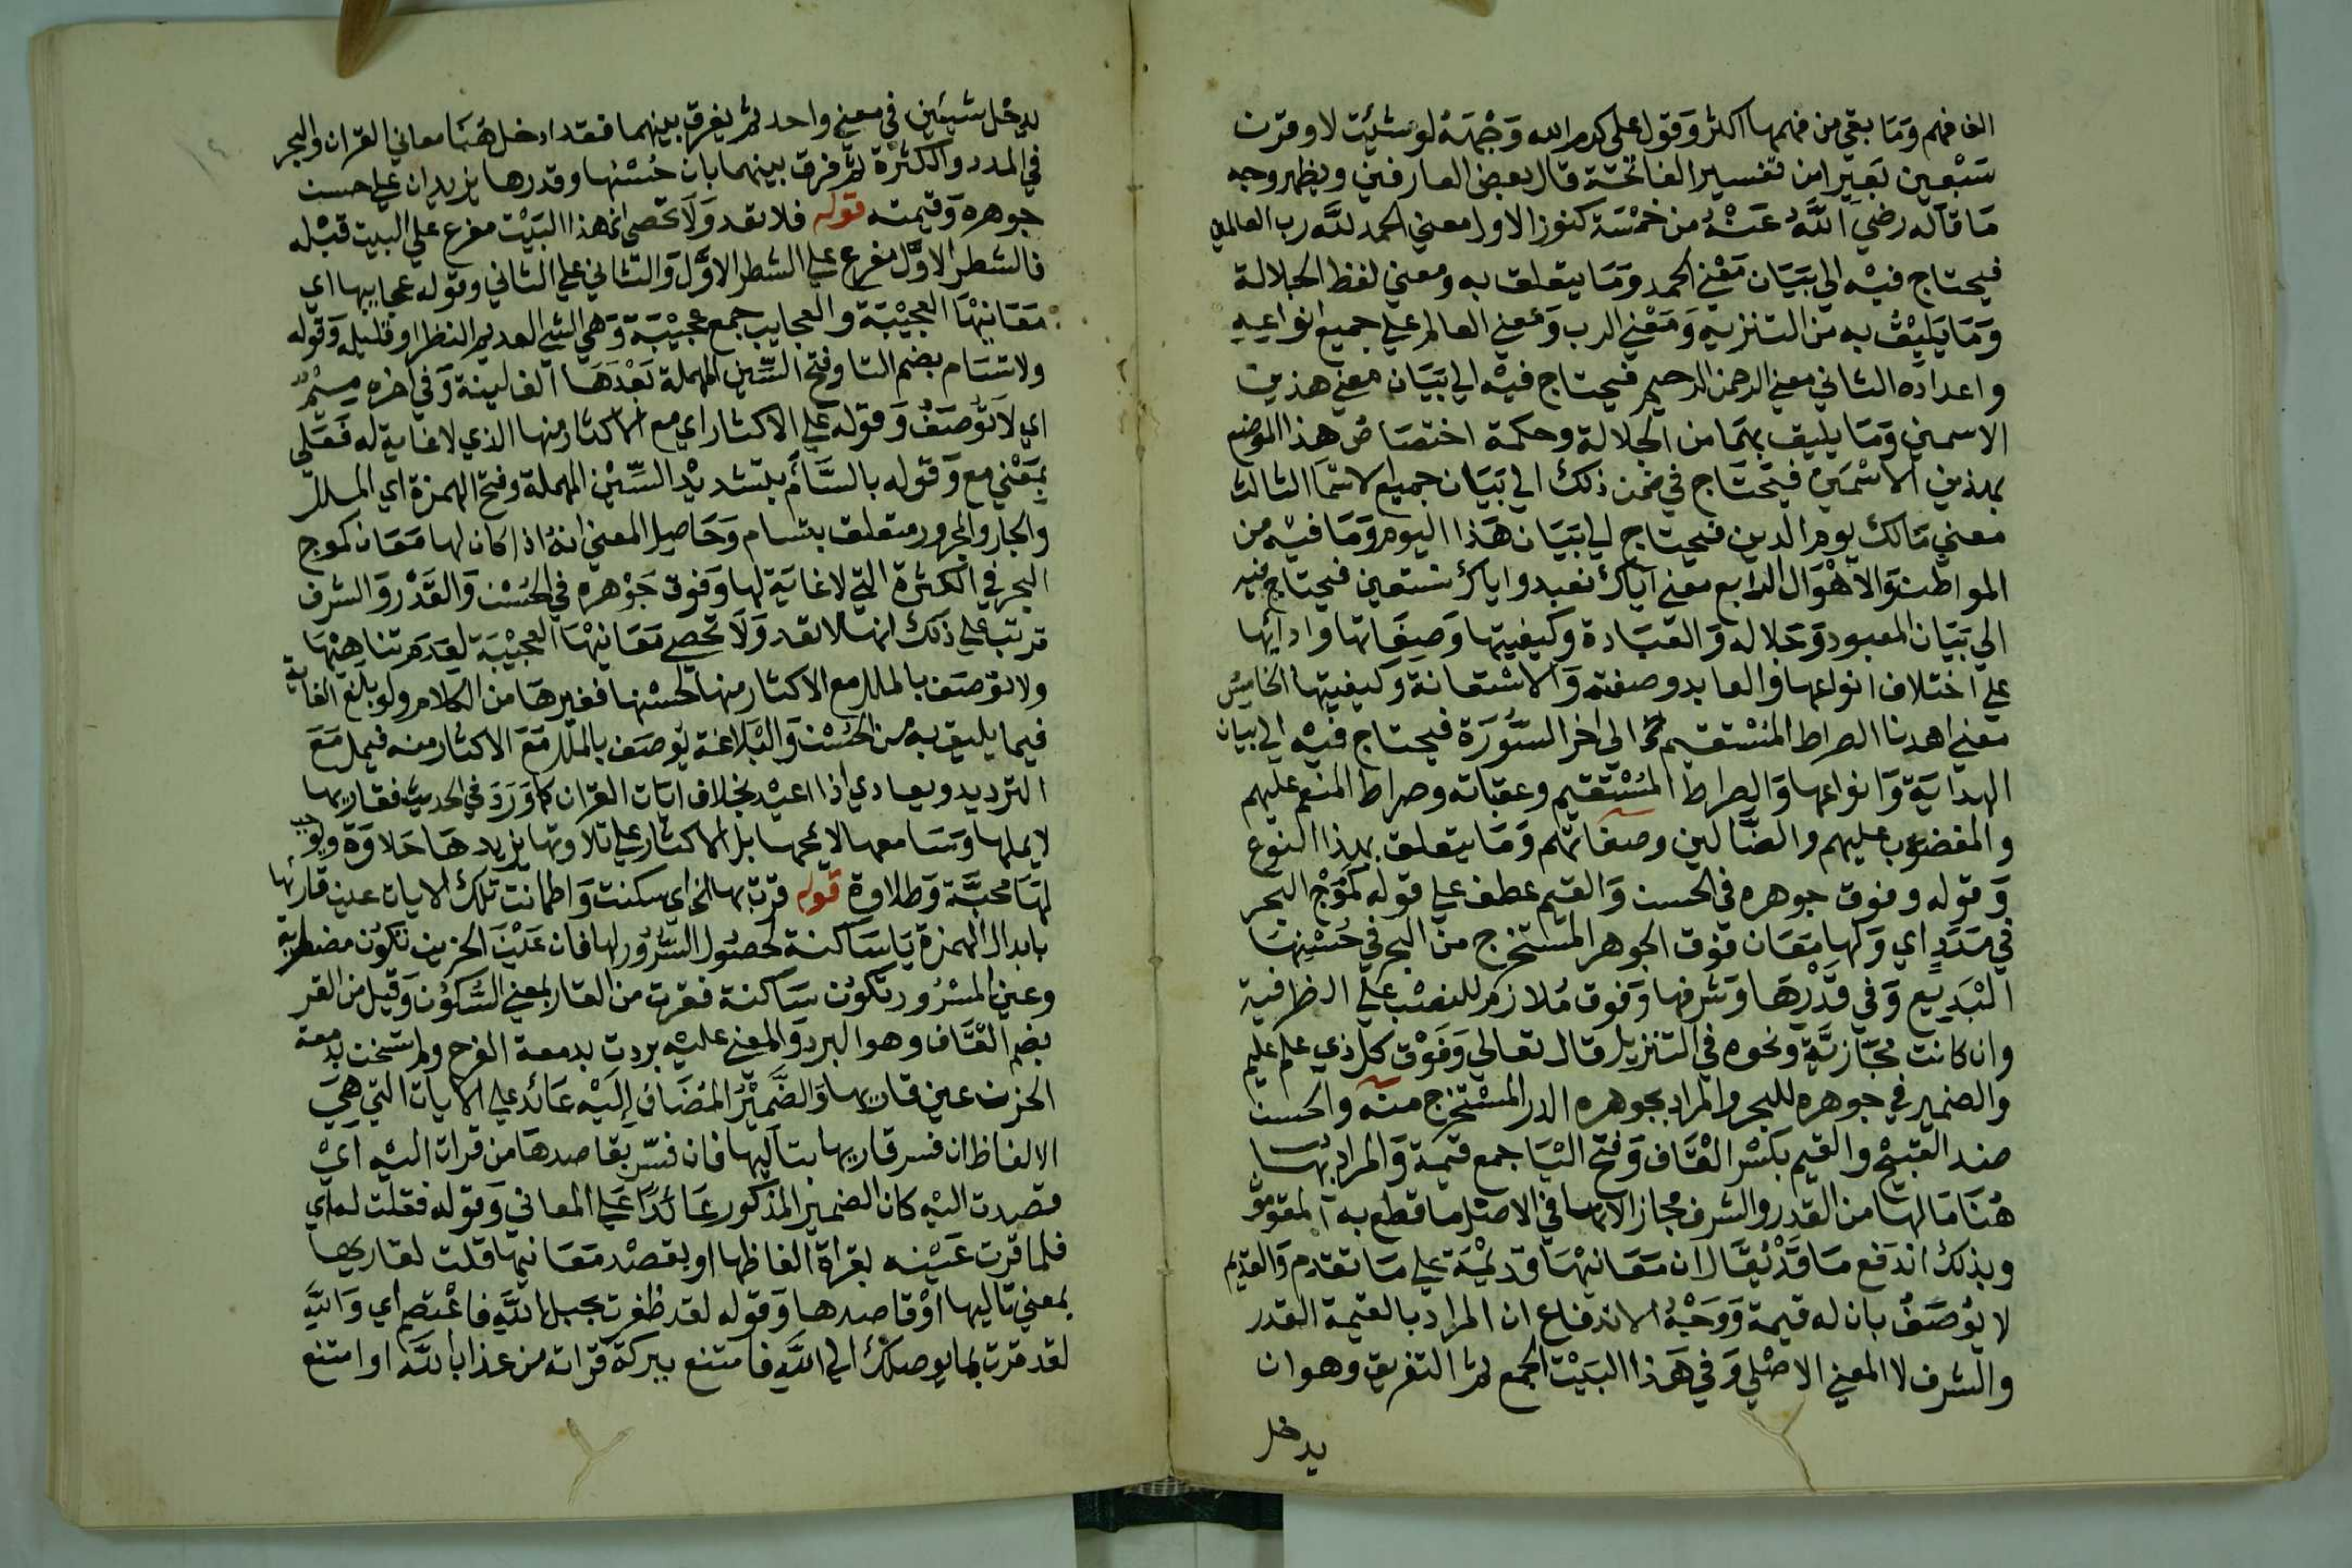 الف فهم وَمَا بقي من فهمها اكثر وَقول علي كرم الله وَجْهَهُ لو شئت لاوقرت
سَبْعين بَعيرا من تفسير الفاتحة قال بعض العارفين ويظهر وجه
مَا قاله رضي اللَّهُ عَنْهُ من خمْسَة كنوز الاول معني الحمد للَّه رب العالمين
فيحتاج فيْه الي بيَان مَعْني الحمد وَمَا يتعلق به ومعني لفظ الجلالة
وَمَا يَليْقُ به من التنزيه وَمَعْني الرب وَمعني العالم علي جميع انواعِهِ
واعداده الثاني معني الرحمن الرحيم فيحتاج فيْه الي بَيَان معني هذين
الاسمين وَمَا يليق بهمَا من الجلالة وحكمة اختصَاص هذا الموضع
بهذين الاسْمَين فيَحتَاج في ضمن ذلك الي بَيَان جميع الاسمَا الثالث
معني مَالك يوم الدين فيحتاج الي بَيَان هَذا اليوم وَمَا فيْه من
المواطن وَالاهْوَال الرابع معني اياك نعبد واياك نستعين فيحتاج فيه
الي بَيَان المعبود وَجَلاله وَالعبَادة وكيفيتها وَصِفَاتها وادائها
علي اختلاف انواعها وَالعابد وصفته وَالاسْتعَانة وَكيفيتها الخامِسُ
معني اهدنا الصراط المُسْتقيم الي اخر السُّورَة فيحتاج فيْه الي بيان
الهدايَة وَانواعها وَالصراط المُسْتقيم وعقباته وصراط المنعم عليهم
والمغضوب عليهم والضَّالين وصفاتهم وَمَا يتعلق بهذا النوع
وَقوله وفوق جوهره في الحسن وَالقيم عطف علي قوله كمَوْج البحر
في مَدَدٍ اي وَلها مَعَان فوق الجوهر المستخرج من البحر في حُسْنِهَا
البَديع وَفي قَدْرهَا وَشرفها وَفوق مُلازم للنصْب علي الظرفية
وان كانت مجَازيَّة ونحوه في التنزيل قال تعالي وَفَوْق كل ذي علم عليم
والضمير في جوهره للبحر والمراد بجوهره الدر المسْتخرج منه والحسن
ضد القبيْح والقيم بكسْر القاف وَفتح اليَا جمع قيمة وَالمراد بها
هُنَا مَا لها من القدر والشرف مجازا لانها في الاصْل ما قطع به المقومو
وبذلك اندفع مَا قَدْ يُقَال ان مَعَانيْهَا قديمَة علي مَا تقدم وَالقديم
لا يُوصَفُ بان له قيمة وَوَجْهُ الاندفاع ان المراد بالقيمة القدر
والشرف لا المعني الاصْلي وَفي هَذا البَيْت الجمع ثم التفريق وهو ان
يدخل
يدخل شيئين في معني واحد ثم يفرق بينهما فقد ادخل هُنا معاني القران والبحر
في المدد والكثرة ثم فرق بينهما بان حُسْنها وقدرها يزيدان علي حسن
جوهره وَقيمته قوله فلا تعد وَلَا تحصي الخ هذا البَيْت مفرع علي البيت قبْله
فالشطر الاوَّل مفرع علي الشطر الاوَّل وَالثاني علي الثاني وقوله عجايبها اي
مَعَانيْهَا العجيْبَة والعجايب جمع عجيْبَة وَهي الشي العديم النظر او قليله وَقوله
ولا تسَام بضم التا وفتح السِّين المهملة بَعْدَهَا الف لينة وَفي اخره ميْم
اي لَا توُصَفُ وَقوله علي الاكثار اي مع الاكثار منها الذي لا غاية له فَعَلي
بمَعْني مع وَقوله بالسَّأَم بتشديْد السِّيْن المهملة وفتح الهمزة اي الملل
والجار والمجرور متعلق بتسام وَحَاصِل المعني انهُ اذا كان لها مَعَان كموج
البحر في الكثرة التي لا غايَة لها وَفوق جَوْهره في الحُسْن وَالقَدْر وَالشرف
ترتب علي ذلك انها لا تعد وَلَا تحصي مَعَانيْهَا العجيْبَة لِعَدم تناهيْهَا
ولا توصَف بالملل مع الاكثار منها لحُسْنها فغيرهَا من الكلام ولو بلغ الغاية
فيما يليق به من الحُسْن وَالبَلاغة يُوصَف بالملل مَعَ الاكثار منه فيمل مَعَ
الترديد ويعادي اذا اعيْد بخلاف ايَات القران كما وَرَدَ في الحديث فقاريها
لا يملها وَسَامعها لا يمجها بل الاكثار علي تلاوتها يزيدهَا حَلاوَة ويوجب
لهَا محبَّة وَطلاوة قوله قرت بها الخ اي سكنت وَاطمانت تلك الايات عين قارئها
بابدال الهمزة يَا سَاكنة لحصُول السُّرُور لها فان عَيْن الحزين تكوُن مضطربة
وعين المسْرُور تكوُن سَاكنة فقرت من القرار بمعني السُّكوُن وَقيل من القر
بضم القَّاف وهو البرد وَالمعني عليْه بردت بدمعة الفرح ولم تسخن بدمعة
الحزن عين قاريها وَالضَّميْرُ المُضَاف إِليْه عَائد علي الايات التي هِيَ
الالفاظ ان فسر قاريها بتاليها فان فسّر بقاصدهَا من قرات اليْه اي
قصدت اليْه كان الضمير المذكور عَائدًا علي المعاني وَقوله فقلت له اي
فلما قرت عَيْنه بقراة الفاظها او بقصْد مَعَانيها قلت لقاريها
بمعني تاليها اوْ قاصدها وَقوله لقد ظفرت بحبل اللَّهِ فاعْتصم اي وَاللَّهِ
لقد قرت بما يوصلك الي اللَّهِ فامتنع ببركة قراته من عذاب اللَّه او امتنع